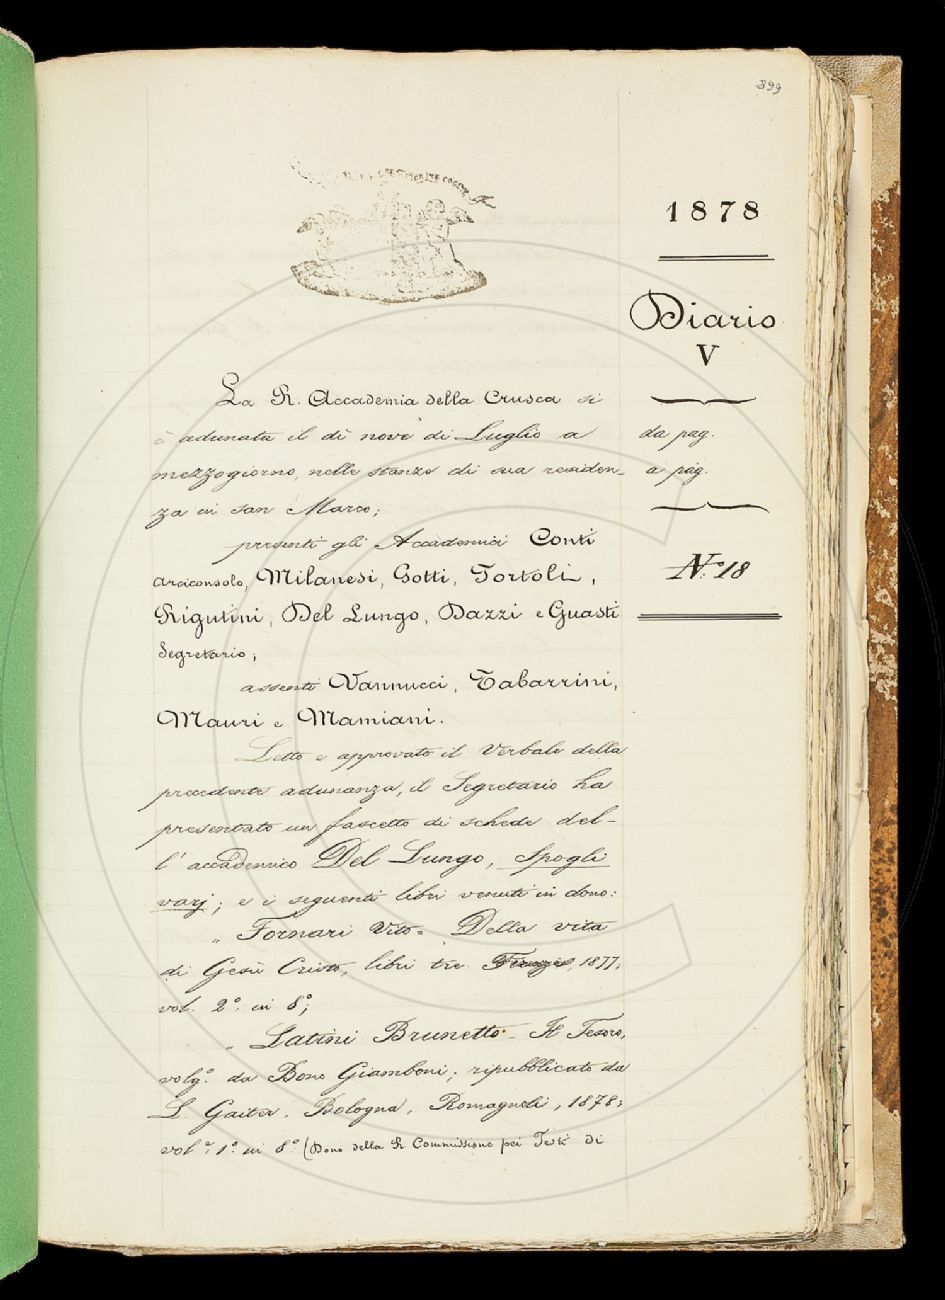 899
1878
Diario
V
da pag.
a pag.
N.º 18
La R. Accademia della Crusca si
è adunata il dì nove di Luglio a
mezzogiorno, nelle stanze di sua residen-
za in san Marco;
presenti gli Accademici Conti
Arciconsolo, Milanesi, Gotti, Tortoli,
Rigutini, Del Lungo, Dazzi e Guasti
Segretario;
assenti Vannucci, Tabarrini,
Mauri e Mamiani.
Letto e approvato il Verbale della
precedente adunanza, il Segretario ha
presentato un fascetto di schede del-
l'accademico Del Lungo, Spogli
varj; e i seguenti libri venuti in dono:
„ Fornari Vito - Della vita
di Gesù Cristo, libri tre. Firenze, 1877;
vol. 2º in 8º;
„ Latini Brunetto - Il Tesoro,
volgº da Bono Giamboni; ripubblicato da
L. Gaiter. Bologna, Romagnoli, 1878;
volº 1º in 8º (Dono della R Commissione pei Testi di